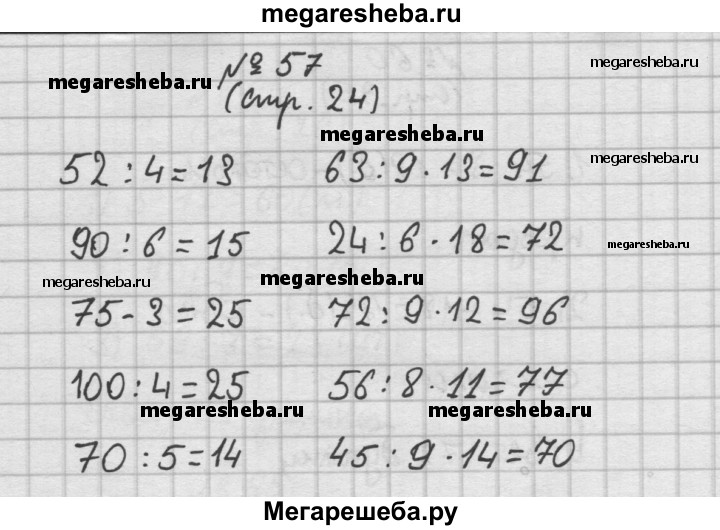 megaresheba.ru
№ 57
megaresheba.ru
megaresheba.ru
(стр. 24)
megaresheba.ru
52 : 4 = 13 63 : 9 · 13 = 91
megaresheba.ru
90 : 6 = 15 24 : 6 · 18 = 72
megaresheba.ru
megaresheba.ru megaresheba.ru
75 - 3 = 25 72 : 9 · 12 = 96
100 : 4 = 25 56 : 8 · 11 = 77
megaresheba.ru megaresheba.ru
70 : 5 = 14 45 : 9 · 14 = 70
Мегарешеба.ру